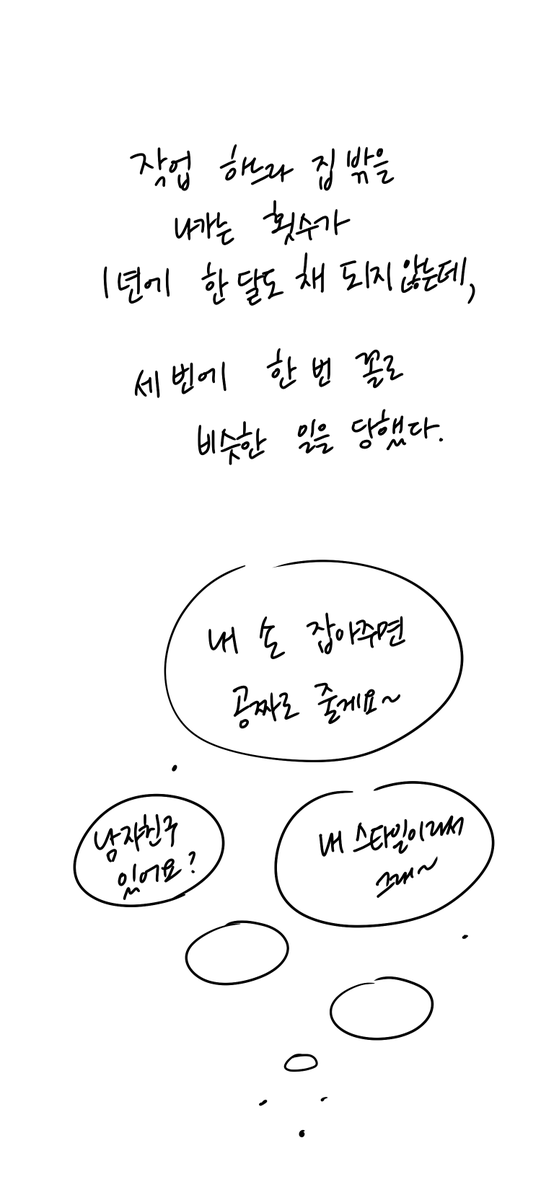 작업 하느라 집 밖을
나가는 횟수가
1년에 한 달도 채 되지 않는데,
세 번에 한 번 꼴로
비슷한 일을 당했다.
내 손 잡아주면
공짜로 줄게요~
남자친구
있어요?
내 스타일이라서
그래~